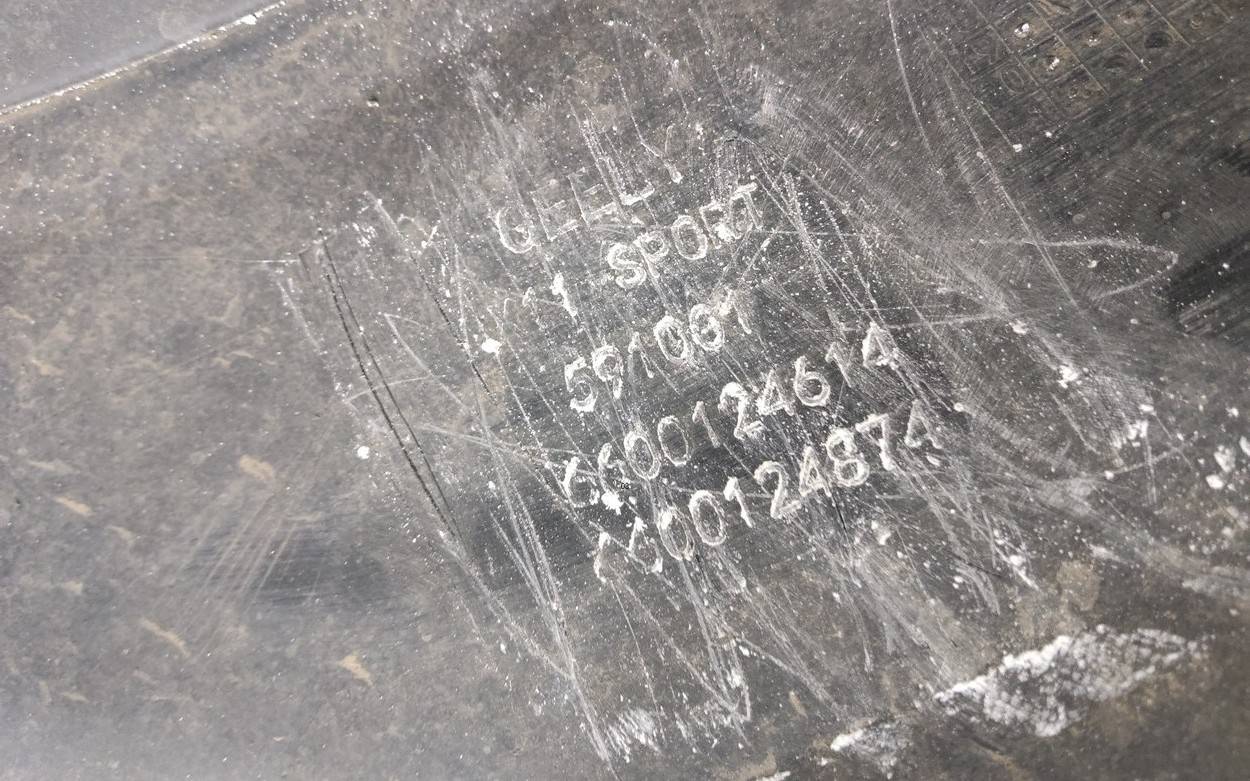 GEELY
11 SPORT
591001
6600124614
6600124874